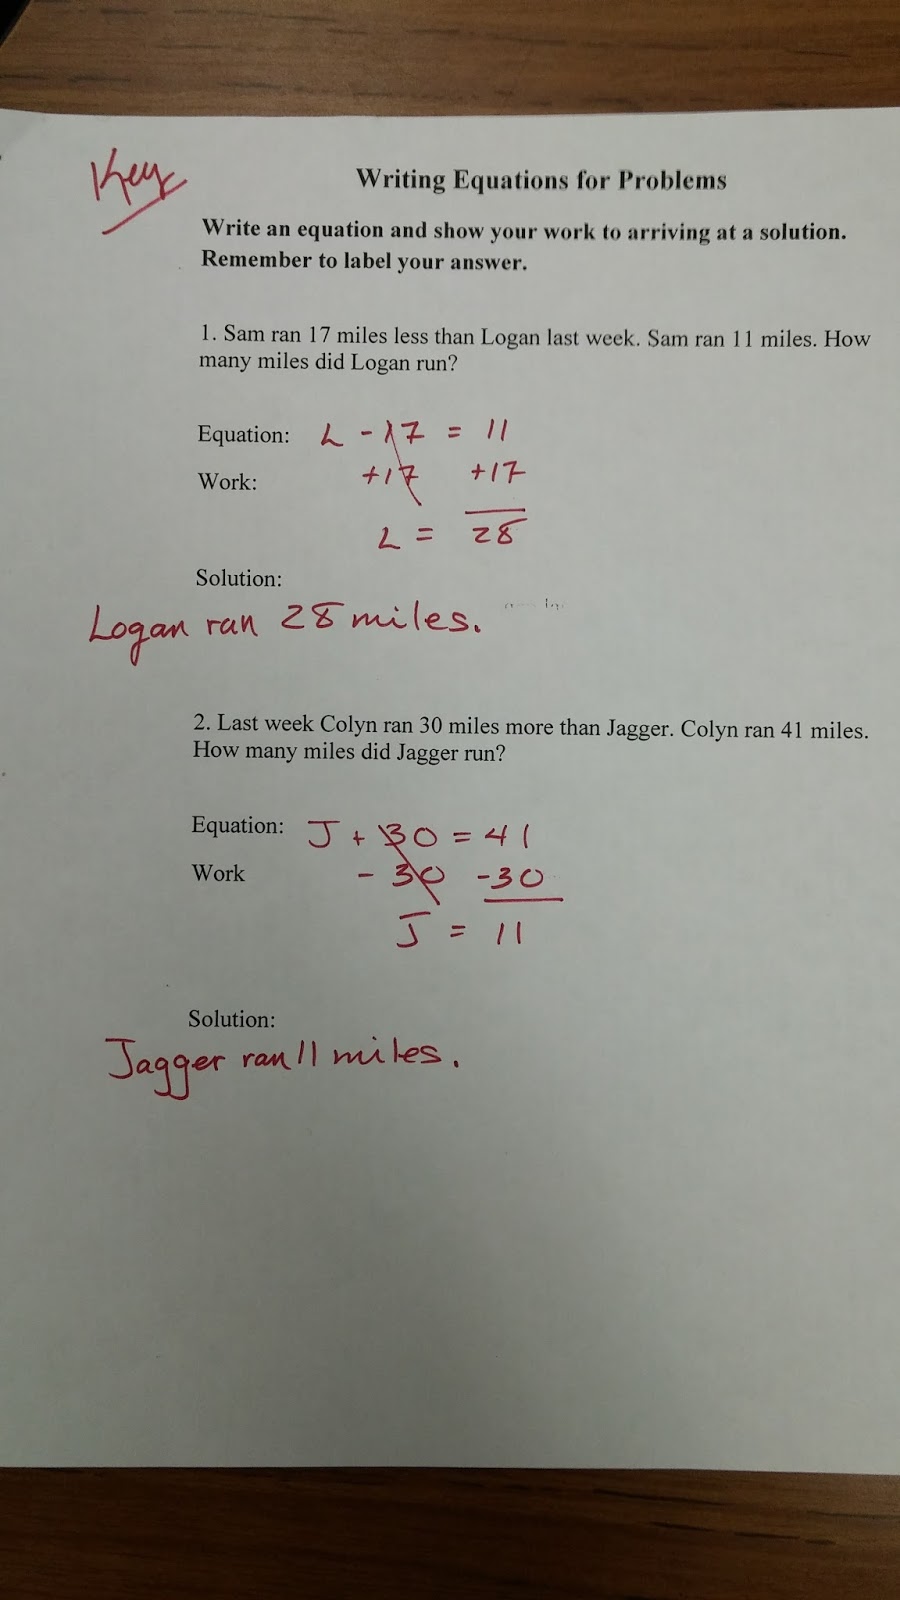 Key
Writing Equations for Problems
Write an equation and show your work to arriving at a solution.
Remember to label your answer.
1. Sam ran 17 miles less than Logan last week. Sam ran 11 miles. How
many miles did Logan run?
Equation: L - 17 = 11
Work: +17 +17
L = 28
Solution:
Logan ran 28 miles.
2. Last week Colyn ran 30 miles more than Jagger. Colyn ran 41 miles.
How many miles did Jagger run?
Equation: J + 30 = 41
Work - 30 -30
J = 11
Solution:
Jagger ran 11 miles.